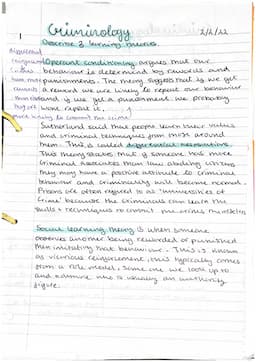 Criminology 2/2/22
Describe 2 learning theories
Operant conditioning argues that our
behaviour is determined by rewards and
punishments. The theory suggests that is we get
a reward we are likely to repeat our behaviour
and is we get a punishment we probably
wont repeat it.
more likely to commit the crime
Sutherland said that people learn their values
and criminal techniques from those around
them. This is called differential association.
This theory states that is someone has more
criminal associates than law abiding citizens
they may have a positive attitude to criminal
behaviour and criminality will become normal.
Prisons are often refered to as 'universities of
crime' because the criminals can learn the
skills + techniques to commit the crimes
Social learning theory is when someone
observes another being rewarded or punished
then imitating that behaviour. This is known
as vicarious reinforcement, this typically comes
from a role model, some one we look up to
and admire who is usually an authority
figure.